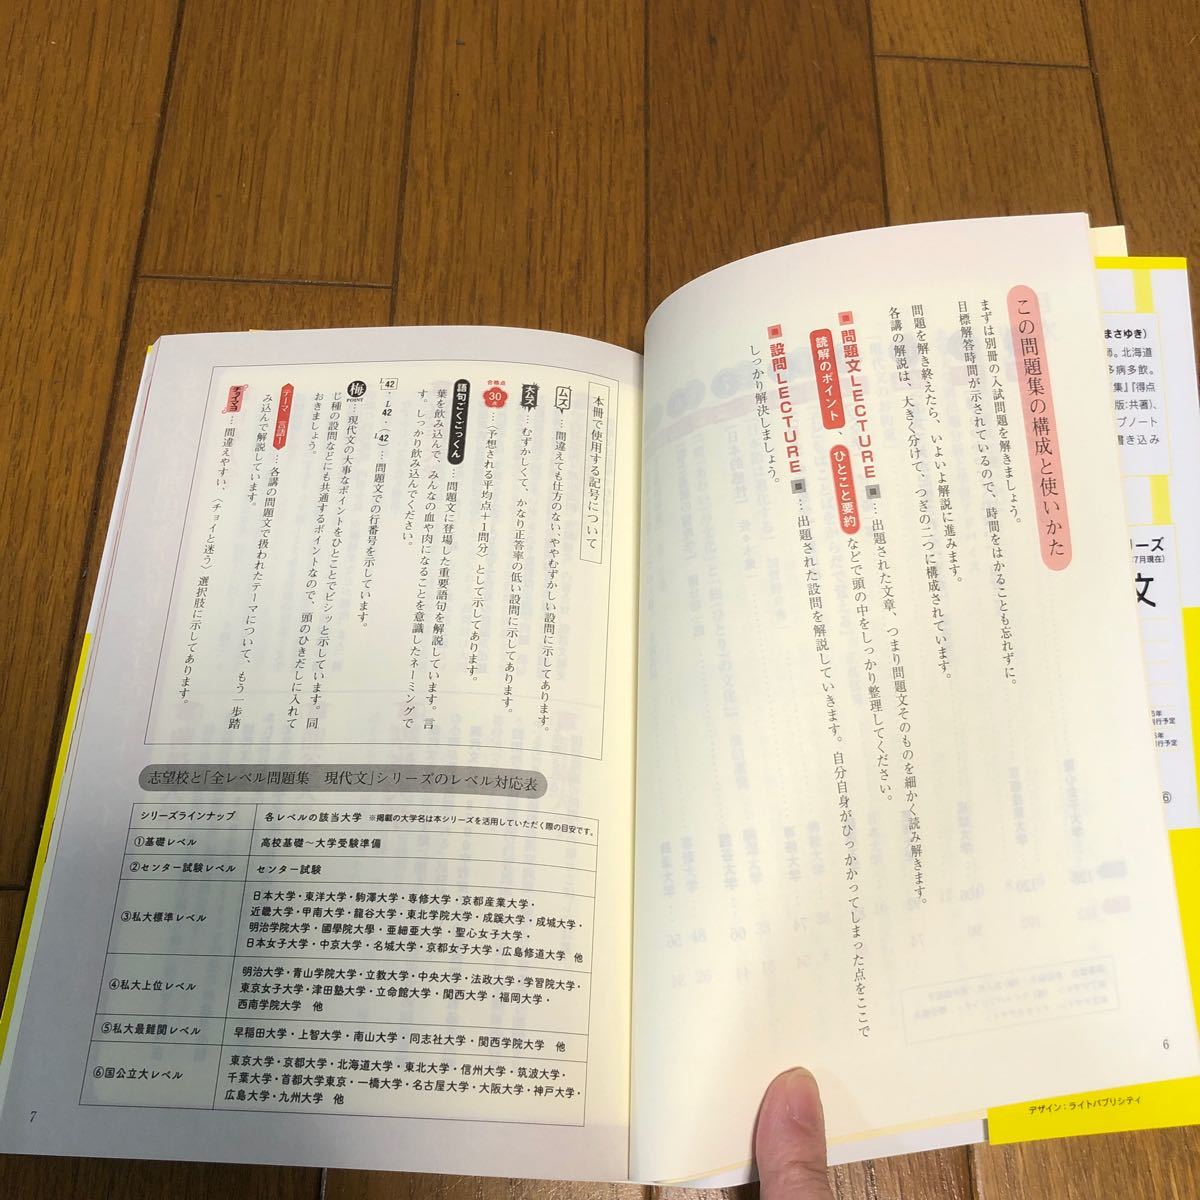 この問題集の構成と使いかた
まずは別冊の入試問題を解きましょう。
目標解答時間が示されているので、時間をはかることも忘れずに。
問題を解き終えたら、いよいよ解説に進みます。
各講の解説は、大きく分けて、つぎの二つに構成されています。
■ 問題文LECTURE ■ … 出題された文章、つまり問題文そのものを細かく読み解きます。
読解のポイント 、 ひとこと要約 などで頭の中をしっかり整理してください。
■ 設問LECTURE ■ … 出題された設問を解説していきます。自分自身がひっかかってしまった点をここで
しっかり解決しましょう。
6
本冊で使用する記号について
ムズ … 間違えても仕方のない、ややむずかしい設問に示してあります。
大ムズ … むずかしくて、かなり正答率の低い設問に示してあります。
合格点 30点 … 〈予想される平均点+1問分〉として示してあります。
語句ごくごっくん … 問題文に登場した重要語句を解説しています。言
葉を飲み込んで、みんなの血や肉になることを意識したネーミングで
す。しっかり飲み込んでください。
L42 ・ L42 ・ (L42) … 問題文での行番号を示しています。
梅 POINT … 現代文の大事なポイントをひとことでビシッと示しています。同
じ種の設問などにも共通するポイントなので、頭のひきだしに入れて
おきましょう。
テーマ 言語1 … 各講の問題文で扱われたテーマについて、もう一歩踏
み込んで解説しています。
チョイマヨ … 間違えやすい、〈チョイと迷う〉選択肢に示してあります。
志望校と「全レベル問題集 現代文」シリーズのレベル対応表
シリーズラインナップ 各レベルの該当大学 ※掲載の大学名は本シリーズを活用していただく際の目安です。
①基礎レベル 高校基礎～大学受験準備
②センター試験レベル センター試験
③私大標準レベル
日本大学・東洋大学・駒澤大学・専修大学・京都産業大学・
近畿大学・甲南大学・龍谷大学・東北学院大学・成蹊大学・成城大学・
明治学院大学・國學院大學・亜細亜大学・聖心女子大学・
日本女子大学・中京大学・名城大学・京都女子大学・広島修道大学 他
④私大上位レベル
明治大学・青山学院大学・立教大学・中央大学・法政大学・学習院大学・
東京女子大学・津田塾大学・立命館大学・関西大学・福岡大学・
西南学院大学 他
⑤私大最難関レベル 早稲田大学・上智大学・南山大学・同志社大学・関西学院大学 他
⑥国公立大レベル
東京大学・京都大学・北海道大学・東北大学・信州大学・筑波大学・
千葉大学・首都大学東京・一橋大学・名古屋大学・大阪大学・神戸大学・
広島大学・九州大学 他
7
まさゆき)
師。北海道
多病多飲。
集』『得点
版:共著)、
プノート
書き込み
リーズ
7月現在)
文
5年
刊行予定
6年
刊行予定
⑥
デザイン:ライトパブリシティ